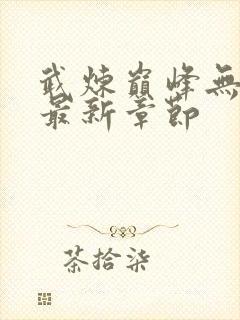 武煉巔峰無
最新章節
茶拾柒